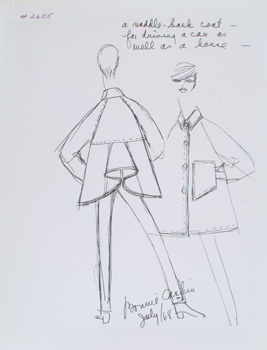 # 2605
a saddle-back coat —
for driving a car as
well as a horse —
Bonnie Cashin
July/68